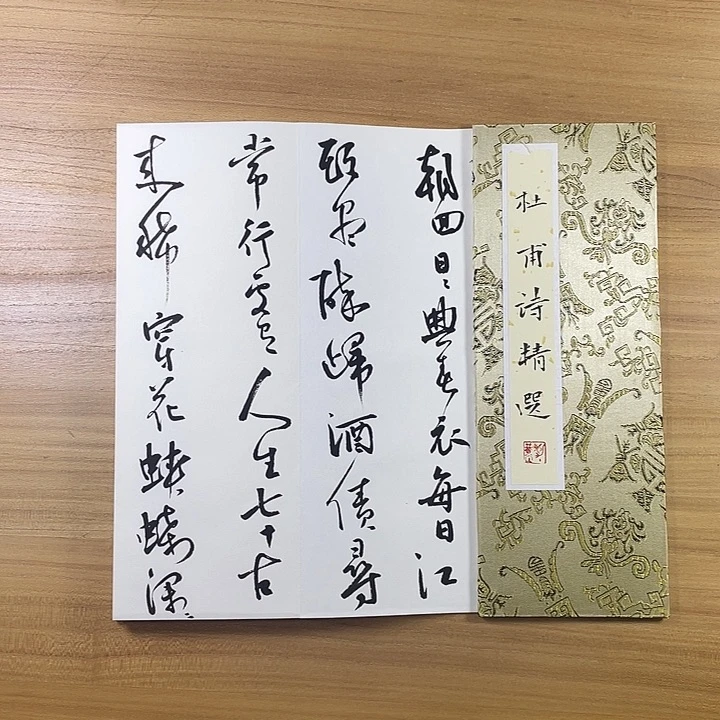 杜甫诗精選
朝回日々典春衣每日江
頭尽醉歸酒債尋
常行處有人生七十古
来稀穿花蛺蝶深々